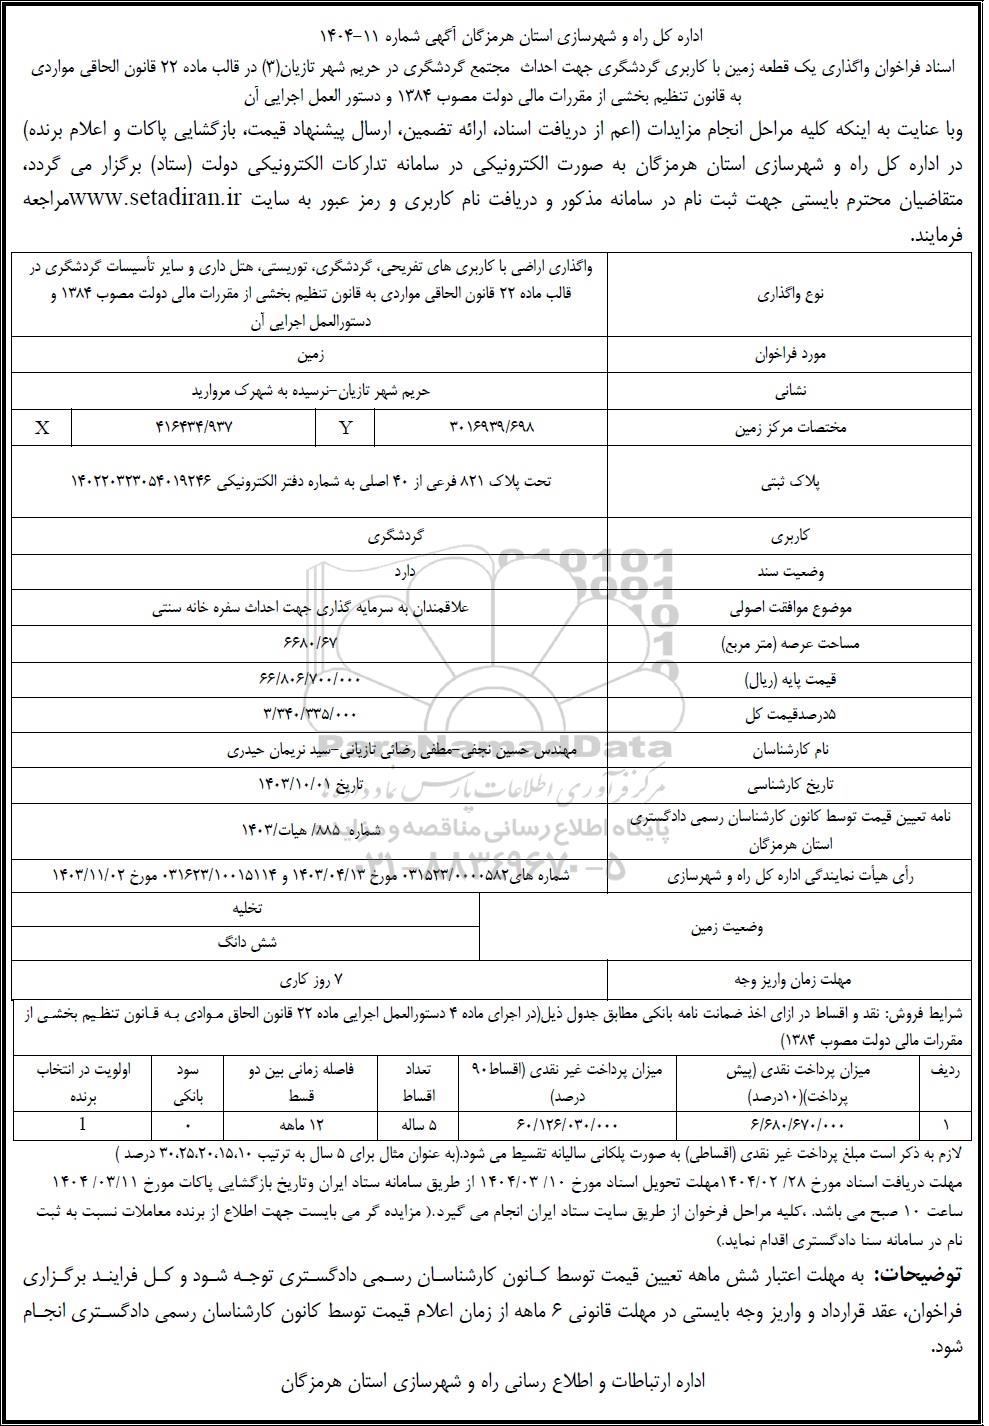 اداره کل راه و شهرسازی استان هرمزگان آگهی شماره ۱۱-۱۴۰۴
اسناد فراخوان واگذاری یک قطعه زمین با کاربری گردشگری جهت احداث مجتمع گردشگری در حریم شهر تازیان(۳) در قالب ماده ۲۲ قانون الحاقی مواردی
به قانون تنظیم بخشی از مقررات مالی دولت مصوب ۱۳۸۴ و دستور العمل اجرایی آن
وبا عنایت به اینکه کلیه مراحل انجام مزایدات (اعم از دریافت اسناد، ارائه تضمین، ارسال پیشنهاد قیمت، بازگشایی پاکات و اعلام برنده)
در اداره کل راه و شهرسازی استان هرمزگان به صورت الکترونیکی در سامانه تدارکات الکترونیکی دولت (ستاد) برگزار می گردد،
متقاضیان محترم بایستی جهت ثبت نام در سامانه مذکور و دریافت نام کاربری و رمز عبور به سایت www.setadiran.irمراجعه
فرمایند.
نوع واگذاری
واگذاری اراضی با کاربری های تفریحی، گردشگری، توریستی، هتل داری و سایر تأسیسات گردشگری در
قالب ماده ۲۲ قانون الحاقی مواردی به قانون تنظیم بخشی از مقررات مالی دولت مصوب ۱۳۸۴ و
دستورالعمل اجرایی آن
مورد فراخوان
زمین
نشانی
حریم شهر تازیان-نرسیده به شهرک مروارید
مختصات مرکز زمین
۳۰۱۶۹۳۹/۶۹۸
Y
۴۱۶۴۳۴/۹۳۷
X
پلاک ثبتی
تحت پلاک ۸۲۱ فرعی از ۴۰ اصلی به شماره دفتر الکترونیکی ۱۴۰۲۲۰۳۲۳۰۵۴۰۱۹۲۴۶
کاربری
گردشگری
وضعیت سند
دارد
موضوع موافقت اصولی
علاقمندان به سرمایه گذاری جهت احداث سفره خانه سنتی
مساحت عرصه (متر مربع)
۶۶۸۰/۶۷
قیمت پایه (ریال)
۶۶/۸۰۶/۷۰۰/۰۰۰
۵درصدقیمت کل
۳/۳۴۰/۳۳۵/۰۰۰
نام کارشناسان
مهندس حسین نجفی-مطفی رضائی تازیانی-سید نریمان حیدری
تاریخ کارشناسی
تاریخ ۱۴۰۳/۱۰/۰۱
نامه تعیین قیمت توسط کانون کارشناسان رسمی دادگستری
استان هرمزگان
شماره ۸۸۵/ هیات/۱۴۰۳
رأی هیأت نمایندگی اداره کل راه و شهرسازی
شماره های۰۳۱۵۲۳/۰۰۰۰۵۸۲ مورخ ۱۴۰۳/۰۴/۱۳ و ۰۳۱۶۲۳/۱۰۰۱۵۱۱۴ مورخ ۱۴۰۳/۱۱/۰۲
وضعیت زمین
تخلیه
شش دانگ
مهلت زمان واریز وجه
۷ روز کاری
شرایط فروش: نقد و اقساط در ازای اخذ ضمانت نامه بانکی مطابق جدول ذیل(در اجرای ماده ۴ دستورالعمل اجرایی ماده ۲۲ قانون الحاق موادی به قانون تنظیم بخشی از
مقررات مالی دولت مصوب ۱۳۸۴)
ردیف
میزان پرداخت نقدی (پیش
پرداخت)(۱۰درصد)
میزان پرداخت غیر نقدی (اقساط۹۰
درصد)
تعداد
اقساط
فاصله زمانی بین دو
قسط
سود
بانکی
اولویت در انتخاب
برنده
۱
۶/۶۸۰/۶۷۰/۰۰۰
۶۰/۱۲۶/۰۳۰/۰۰۰
۵ ساله
۱۲ ماهه
۰
1
لازم به ذکر است مبلغ پرداخت غیر نقدی (اقساطی) به صورت پلکانی سالیانه تقسیط می شود.(به عنوان مثال برای ۵ سال به ترتیب ۳۰،۲۵،۲۰،۱۵،۱۰ درصد )
مهلت دریافت اسناد مورخ ۲۸/ ۱۴۰۴/۰۲مهلت تحویل اسناد مورخ ۱۰/ ۱۴۰۴/۰۳ از طریق سامانه ستاد ایران وتاریخ بازگشایی پاکات مورخ ۰۳/۱۱/ ۱۴۰۴
ساعت ۱۰ صبح می باشد. ،کلیه مراحل فرخوان از طریق سایت ستاد ایران انجام می گیرد.( مزایده گر می بایست جهت اطلاع از برنده معاملات نسبت به ثبت
نام در سامانه سنا دادگستری اقدام نماید.)
توضیحات: به مهلت اعتبار شش ماهه تعیین قیمت توسط کانون کارشناسان رسمی دادگستری توجه شود و کل فرایند برگزاری
فراخوان، عقد قرارداد و واریز وجه بایستی در مهلت قانونی ۶ ماهه از زمان اعلام قیمت توسط کانون کارشناسان رسمی دادگستری انجام
شود.
اداره ارتباطات و اطلاع رسانی راه و شهرسازی استان هرمزگان
ParsNamadData
مرکز فرآوری اطلاعات پارس نماد داده ها
پایگاه اطلاع رسانی مناقصه و مزایده
۰۲۱-۸۸۳۴۹۶۷۰-۵